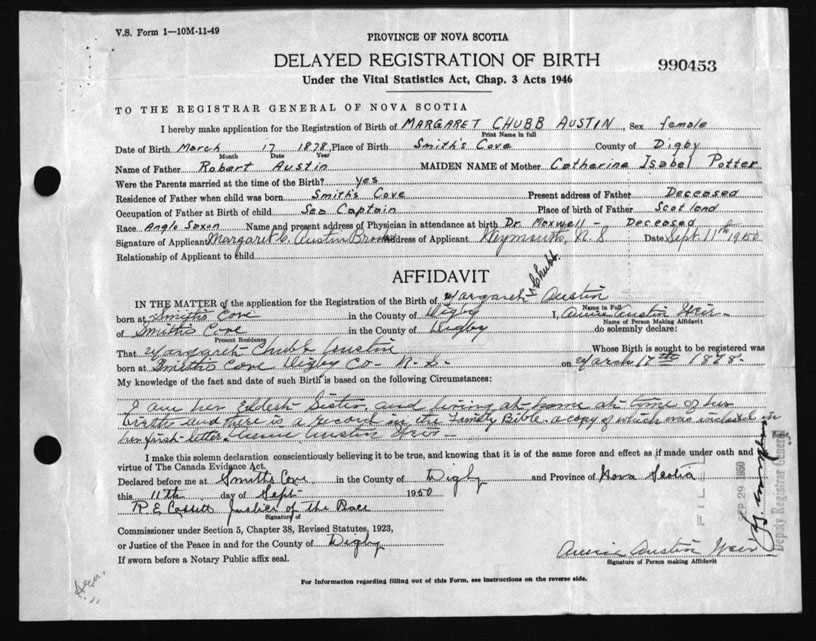 V.S. Form 1—10M-11-49
PROVINCE OF NOVA SCOTIA
DELAYED REGISTRATION OF BIRTH
990453
Under the Vital Statistics Act, Chap. 3 Acts 1946
TO THE REGISTRAR GENERAL OF NOVA SCOTIA
I hereby make application for the Registration of Birth of MARGARET CHUBB AUSTIN, Sex female
Print Name in full
Date of Birth March 17 1878, Place of Birth Smith's Cove County of Digby
Month Date Year
Name of Father Robert Austin MAIDEN NAME of Mother Catherine Isabel Potter
Were the Parents married at the time of the Birth? yes
Residence of Father when child was born Smith's Cove Present address of Father Deceased
Occupation of Father at Birth of child Sea Captain Place of birth of Father Scotland
Race Anglo Saxon Name and present address of Physician in attendance at birth Dr. Maxwell - Deceased
Signature of Applicant Margaret C. Austin Brooks Address of Applicant Weymouth, N.S Date Sept. 11th 1950
Relationship of Applicant to child
AFFIDAVIT
Chubb
IN THE MATTER of the application for the Registration of Birth of Margaret Austin
Name in Full
born at Smiths Cove in the County of Digby I, Annie Austin Weir
Name of Person Making Affidavit
of Smiths Cove in the County of Digby do solemnly declare:
Present Residence
That Margaret Chubb Austin Whose Birth is sought to be registered was
born at Smiths Cove Digby Co N.S. on March 17th 1878.
My knowledge of the fact and date of such Birth is based on the following Circumstances:
I am her Eldest Sister and living at home at time of her
birth and there is a record in the Family Bible a copy of which was inclosed in
her first letter Annie Austin Weir
I make this solemn declaration conscientiously believing it to be true, and knowing that it is of the same force and effect as if made under oath and
virtue of The Canada Evidence Act.
Declared before me at Smiths Cove in the County of Digby and Province of Nova Scotia
this 11th day of Sept 1950
R E Cossett Justice of the Peace
Signature of
Commissioner under Section 5, Chapter 38, Revised Statutes, 1923,
or Justice of the Peace in and for the County of Digby
If sworn before a Notary Public affix seal.
Annie Austin Weir
Signature of Person making Affidavit
For Information regarding filling out of this Form, see instructions on the reverse side.
FILED
SEP 29 1950
Deputy Registrar General